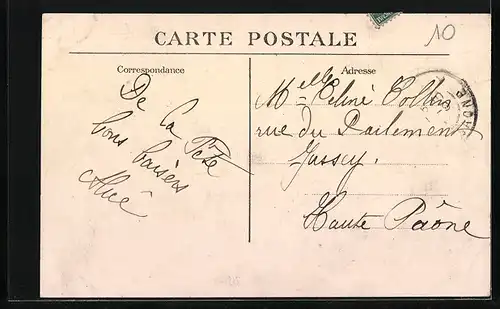 10
CARTE POSTALE
Correspondance
De La Fête
bons baisers
Adresse
Melle Celine
rue du Parlement
Jussey.
Haute Saône